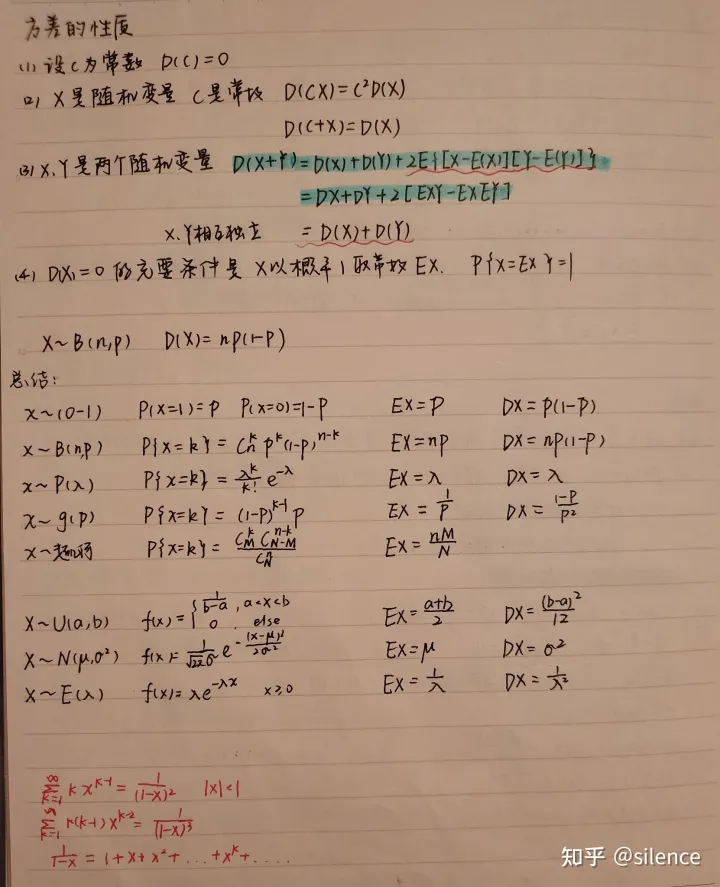 方差的性质
(1) 设C为常数 D(C)=0
(2) X是随机变量 C是常数 D(CX)=C²D(X)
D(C+X)=D(X)
(3) X.Y是两个随机变量 D(X+Y)=D(X)+D(Y)+2E{[X-E(X)][Y-E(Y)]}
=DX+DY+2[EXY-EXEY]
X.Y相互独立 =D(X)+D(Y)
(4) D(X)=0 的充要条件是 X以概率1取常数EX. P{X=EX}=1
X~B(n,p) D(X)=np(1-p)
总结:
X~(0-1) P(X=1)=p P(X=0)=1-p EX=p DX=p(1-p)
X~B(n,p) P{X=k}=C_n^k p^k(1-p)^{n-k} EX=np DX=np(1-p)
X~P(λ) P{X=k}=\frac{λ^k}{k!}e^{-λ} EX=λ DX=λ
X~g(p) P{X=k}=(1-p)^{k-1}p EX=\frac{1}{p} DX=\frac{1-p}{p^2}
X~超几何 P{X=k}=\frac{C_M^k C_{N-M}^{n-k}}{C_N^n} EX=\frac{nM}{N}
X~U(a,b) f(x)={\frac{1}{b-a}, a<x<b EX=\frac{a+b}{2} DX=\frac{(b-a)^2}{12}
0, else
X~N(μ,σ²) f(x)=\frac{1}{\sqrt{2π}σ}e^{-\frac{(x-μ)^2}{2σ^2}} EX=μ DX=σ²
X~E(λ) f(x)=λe^{-λx} x≥0 EX=\frac{1}{λ} DX=\frac{1}{λ^2}
\sum_{k=1}^{∞} kx^{k-1}=\frac{1}{(1-x)^2} |x|<1
k(k-1)x^{k-2}=\frac{1}{(1-x)^3}
\frac{1}{1-x}=1+x+x²+...+x^k+....
知乎 @silence